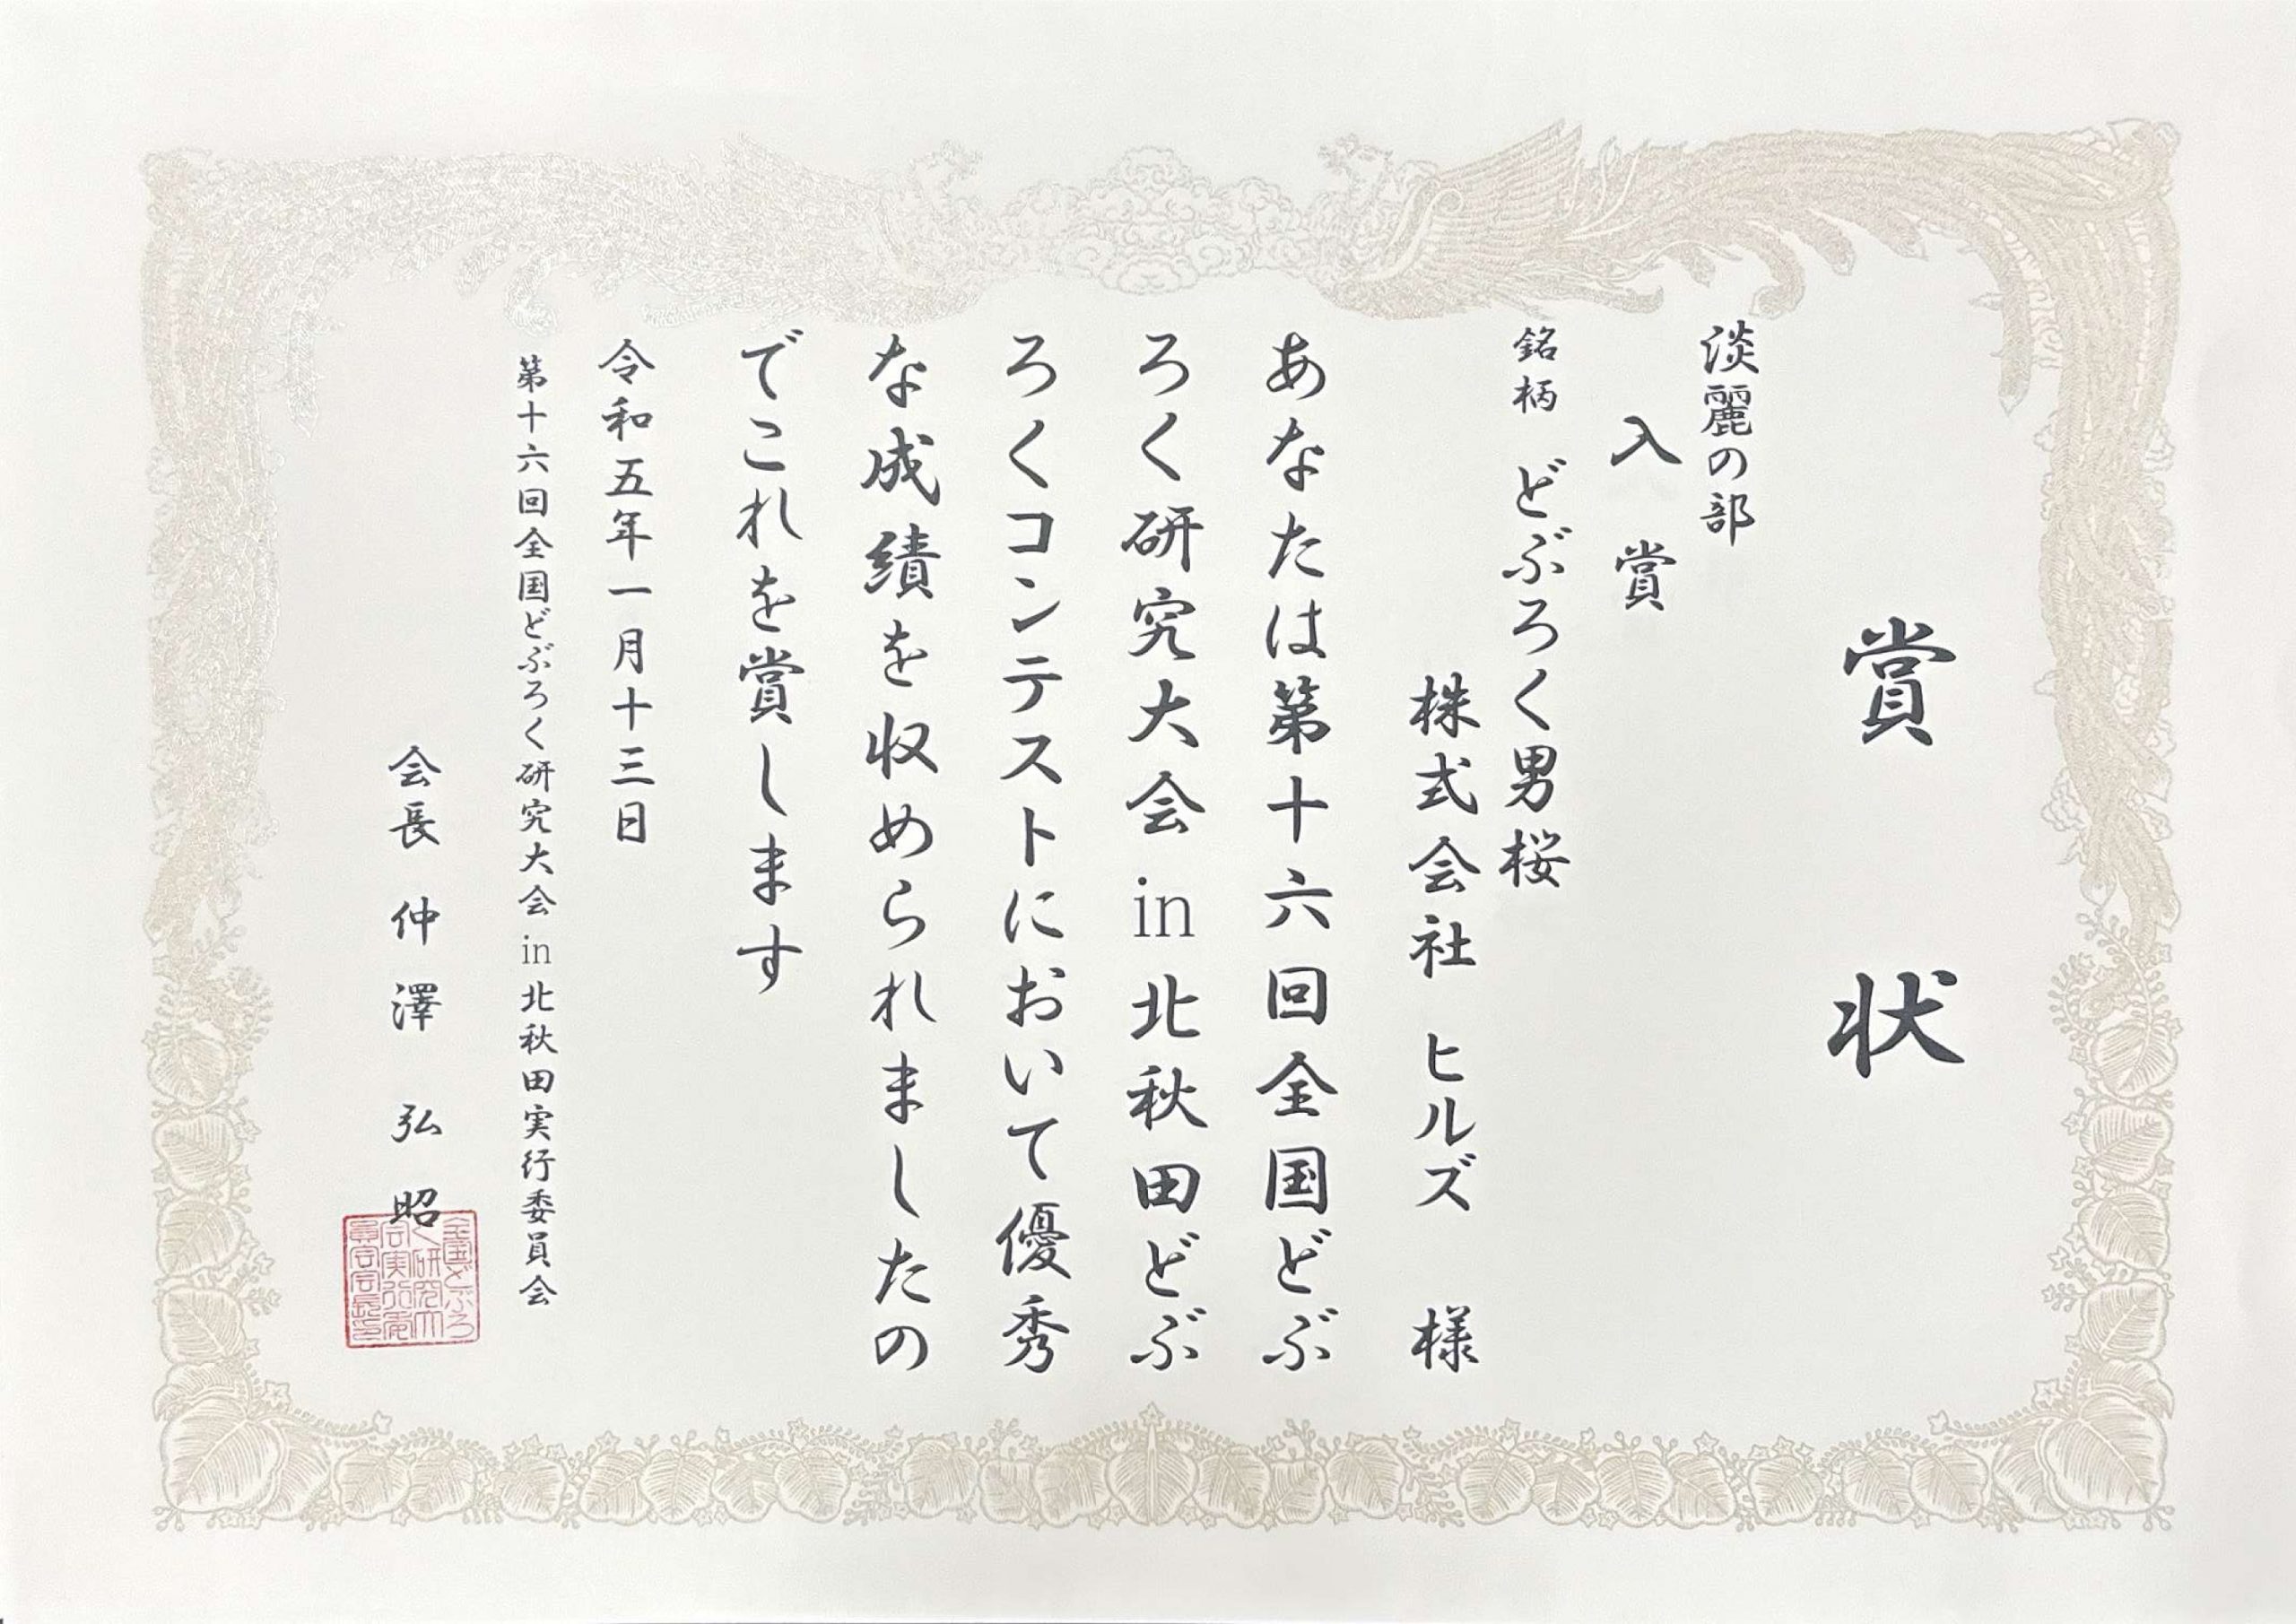 賞状
淡麗の部
入賞
銘柄 どぶろく男桜
株式会社 ヒルズ 様
あなたは第十六回全国どぶ
ろく研究大会in北秋田どぶ
ろくコンテストにおいて優秀
な成績を収められましたの
でこれを賞します
令和五年一月十三日
第十六回全国どぶろく研究大会in北秋田実行委員会
会長 仲澤 弘昭
全国どぶろ
く研究大
会実行委
員会会長印